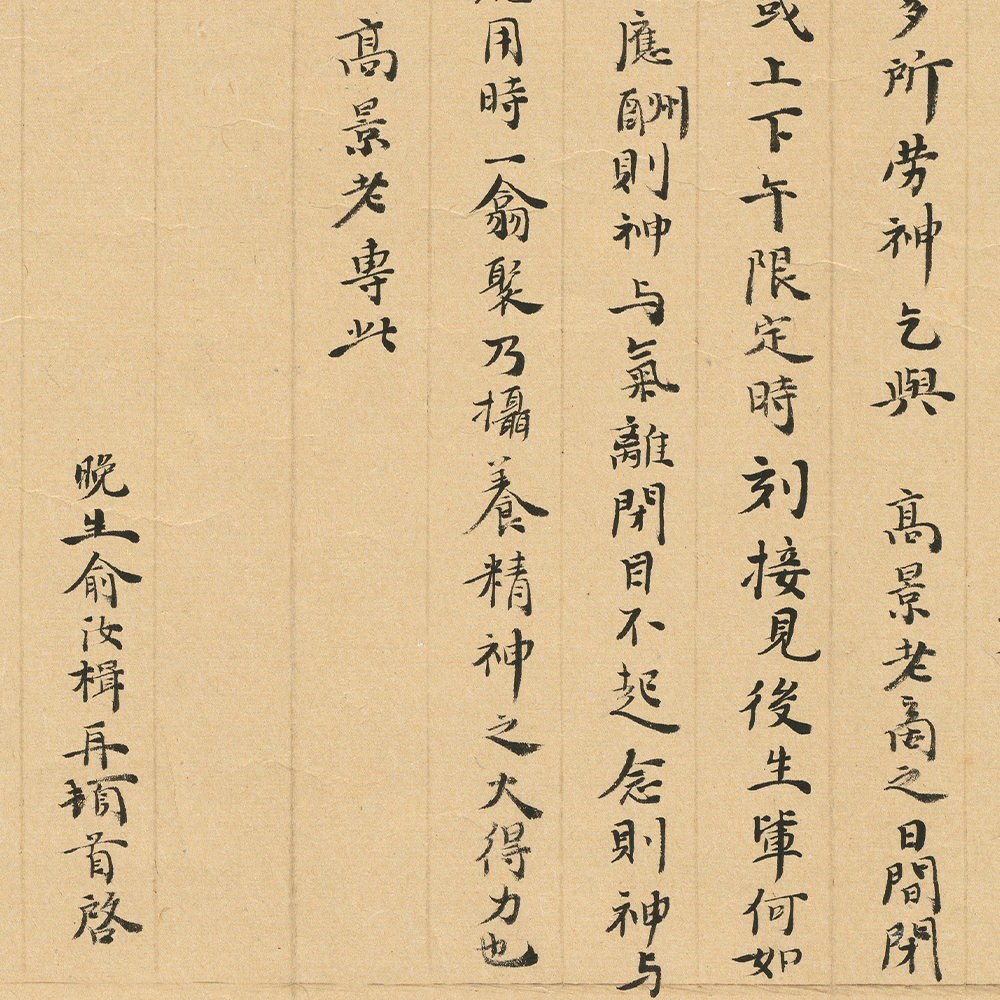 多所劳神乞與 高景老商之日間閉
或上下午限定時刻接見後生軰何如
應酬則神与氣離閉目不起念則神与
用時一翕聚乃攝養精神之大得力也
高景老專此
晚生俞汝楫再頓首啓